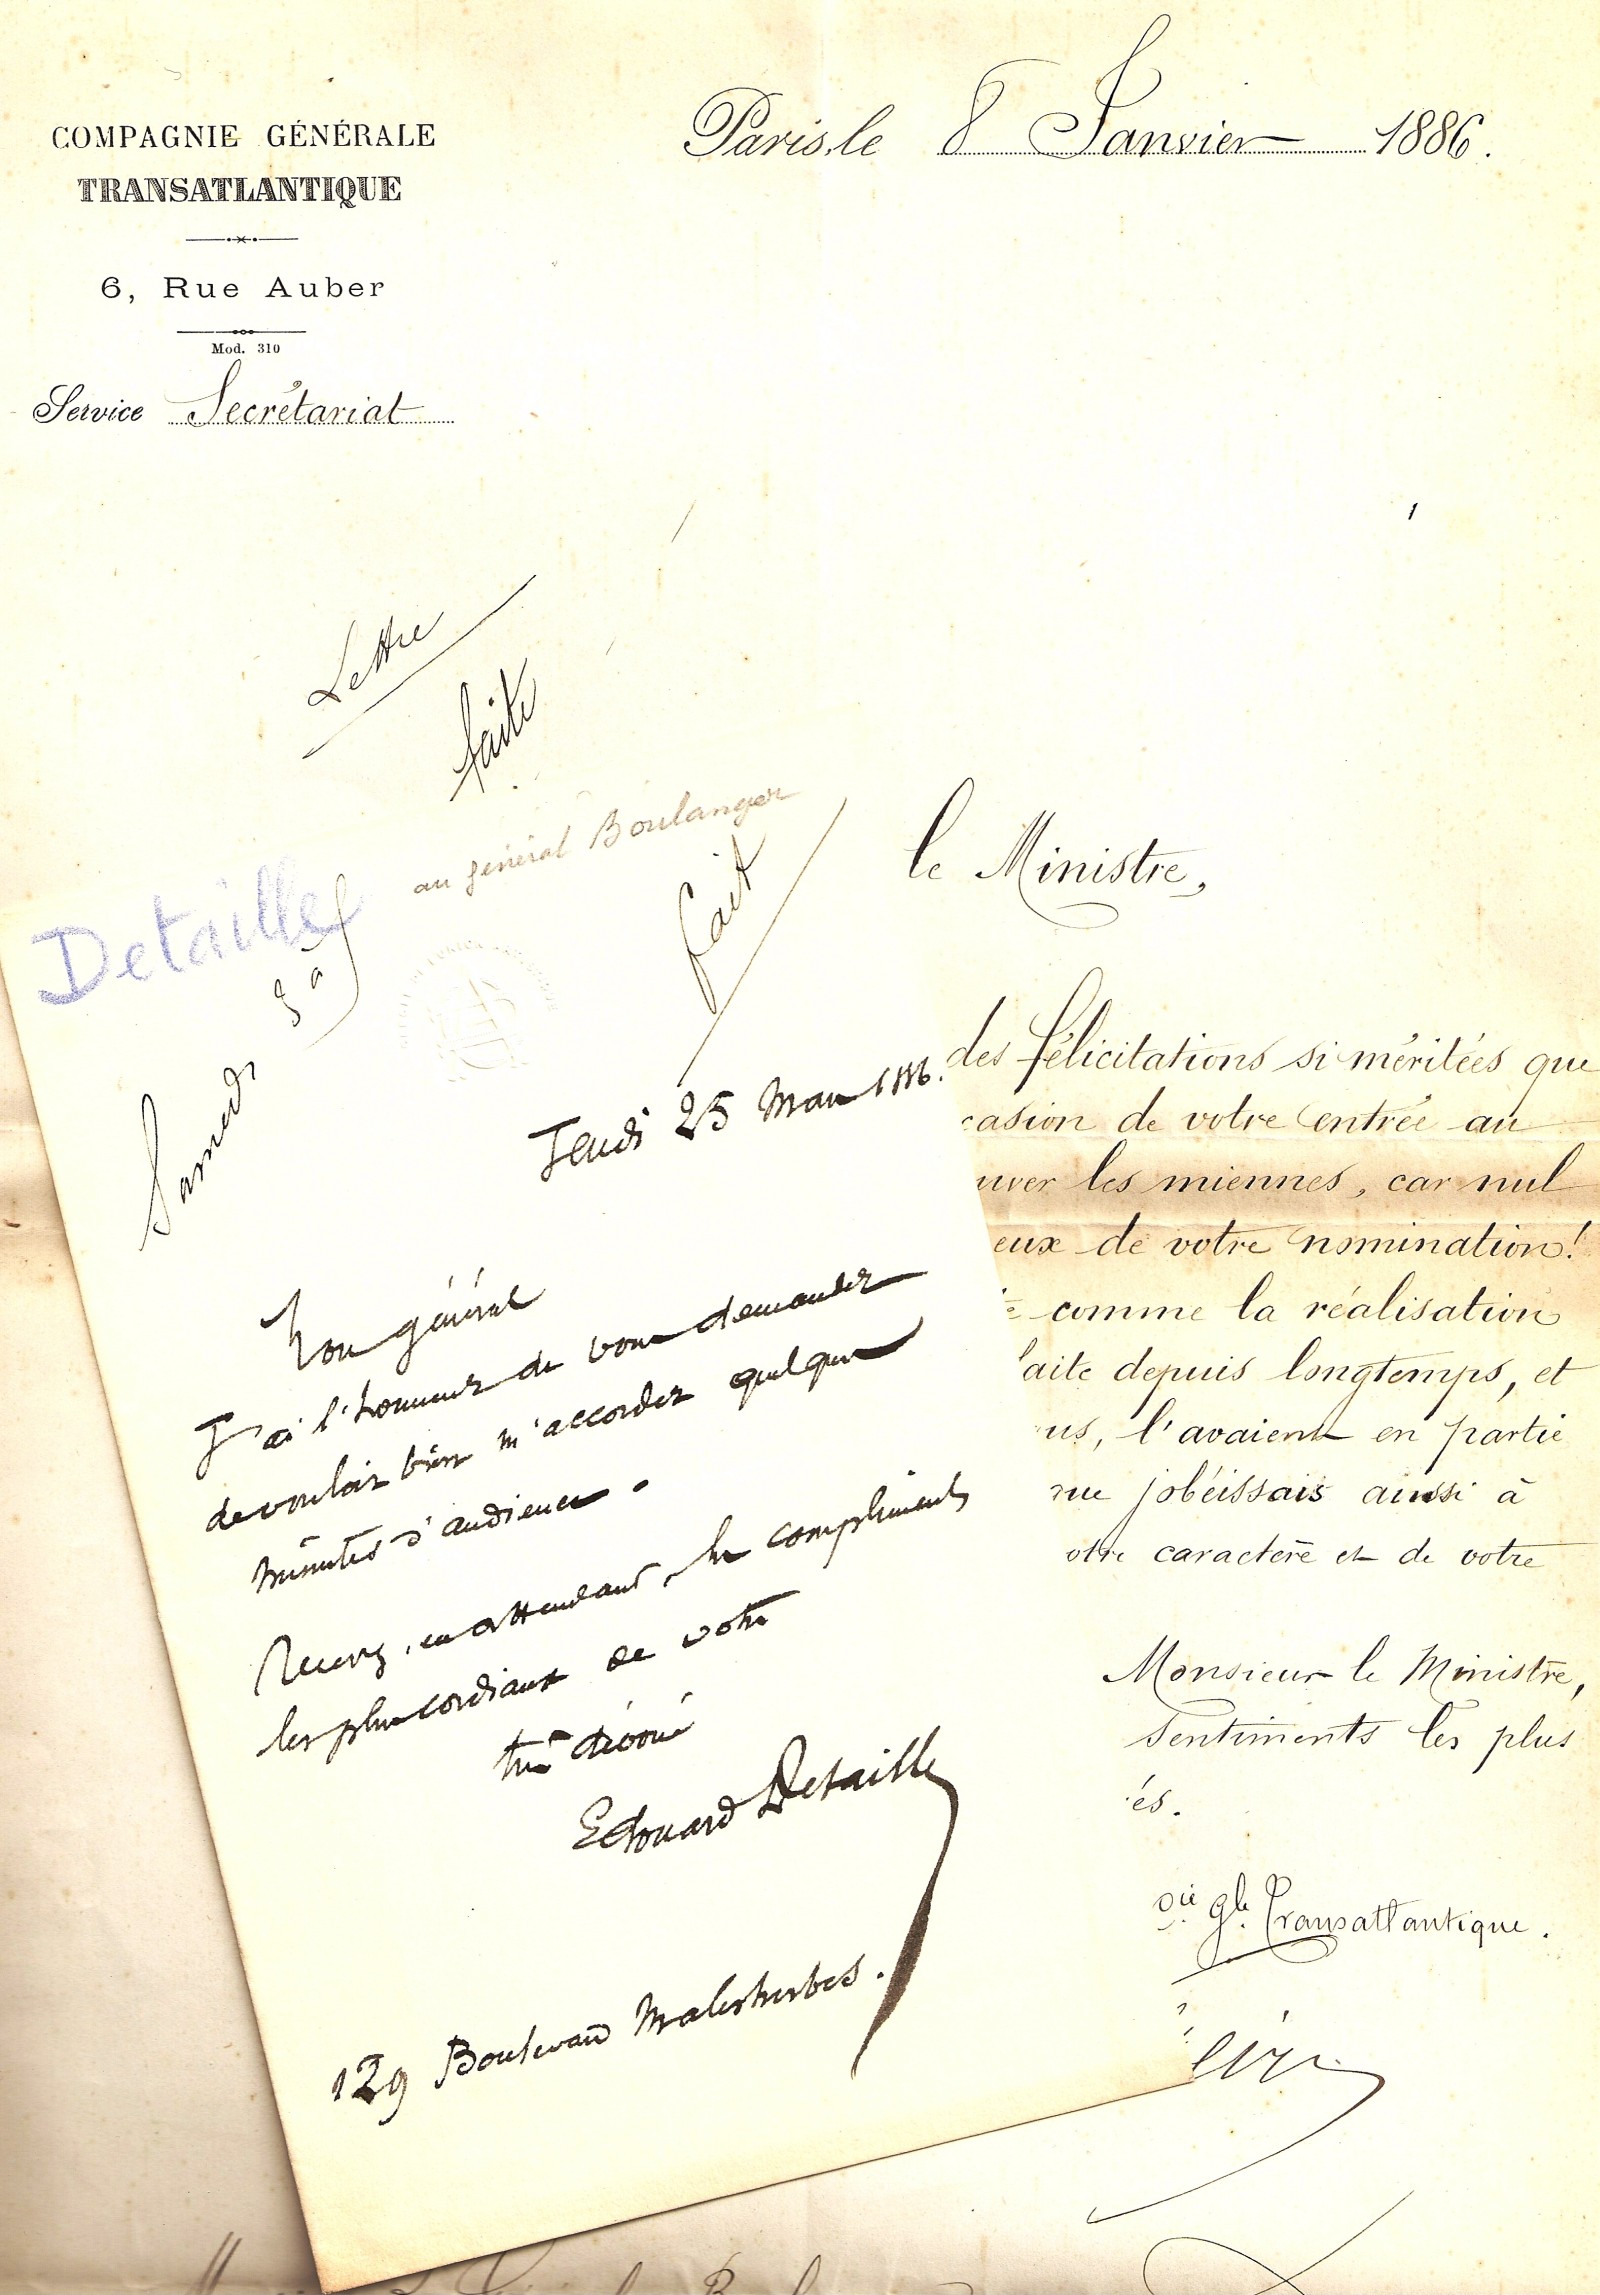 COMPAGNIE GÉNÉRALE
TRANSATLANTIQUE
6, Rue Auber
Mod. 310
Service Secrétariat
Paris, le 8 Janvier 1886.
Lettre
faite
le Ministre,
des félicitations si méritées que
casion de votre entrée au
uver les miennes, car nul
eux de votre nomination!
comme la réalisation
aite depuis longtemps, et
us, l'avaient en partie
ue j'obéissais ainsi à
otre caractère et de votre
Monsieur le Ministre,
sentiments les plus
és.
Cie gle Transatlantique.
Detaille
au général Boulanger
fait
Samedi
Jeudi 25 Mars 1886.
Mon général
J'ai l'honneur de vous demander
de vouloir bien m'accorder quelques
minutes d'audience.
Recevez, en attendant, les compliments
les plus cordiaux de votre
très dévoué
Edouard Detaille
129 Boulevard Malesherbes.